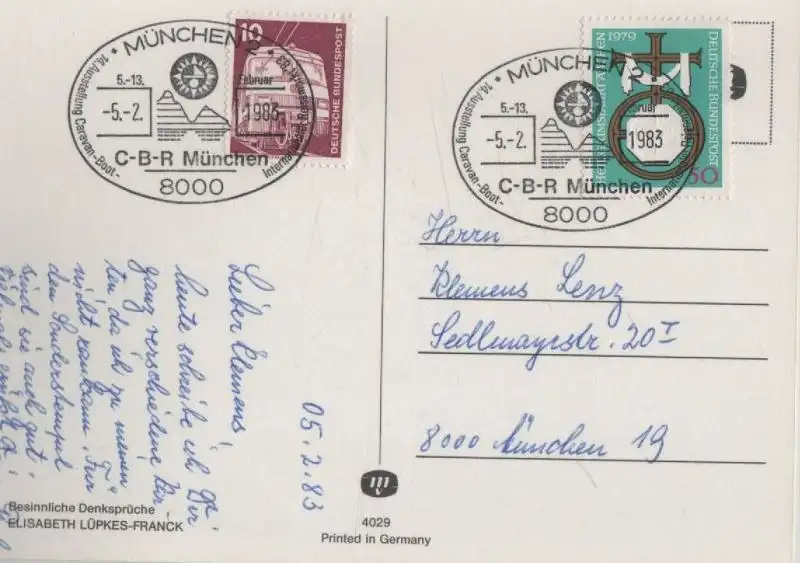 MÜNCHEN 2
14. Ausstellung Caravan-Boot-
Internationaler
5.-13.
Februar
-5.-2.
1983
C-B-R München
8000
10
DEUTSCHE BUNDESPOST
MÜNCHEN 2
14. Ausstellung Caravan-Boot-
5.-13.
-5.-2.
1983
C-B-R München
8000
1979
DEUTSCHE BUNDESPOST
50
Herrn
Klemens Lenz
Sedlmayrstr. 20 I
8000 München 19
05.2.83
Lieber Klemens,
heute schreibe ich Dir
ganz verschiedene Kar-
ten, da ich zu meinen
nicht rankam. Für
den Sonderstempel
sind sie auch gut.
Besinnliche Denksprüche
ELISABETH LÜPKES-FRANCK
mv
4029
Printed in Germany